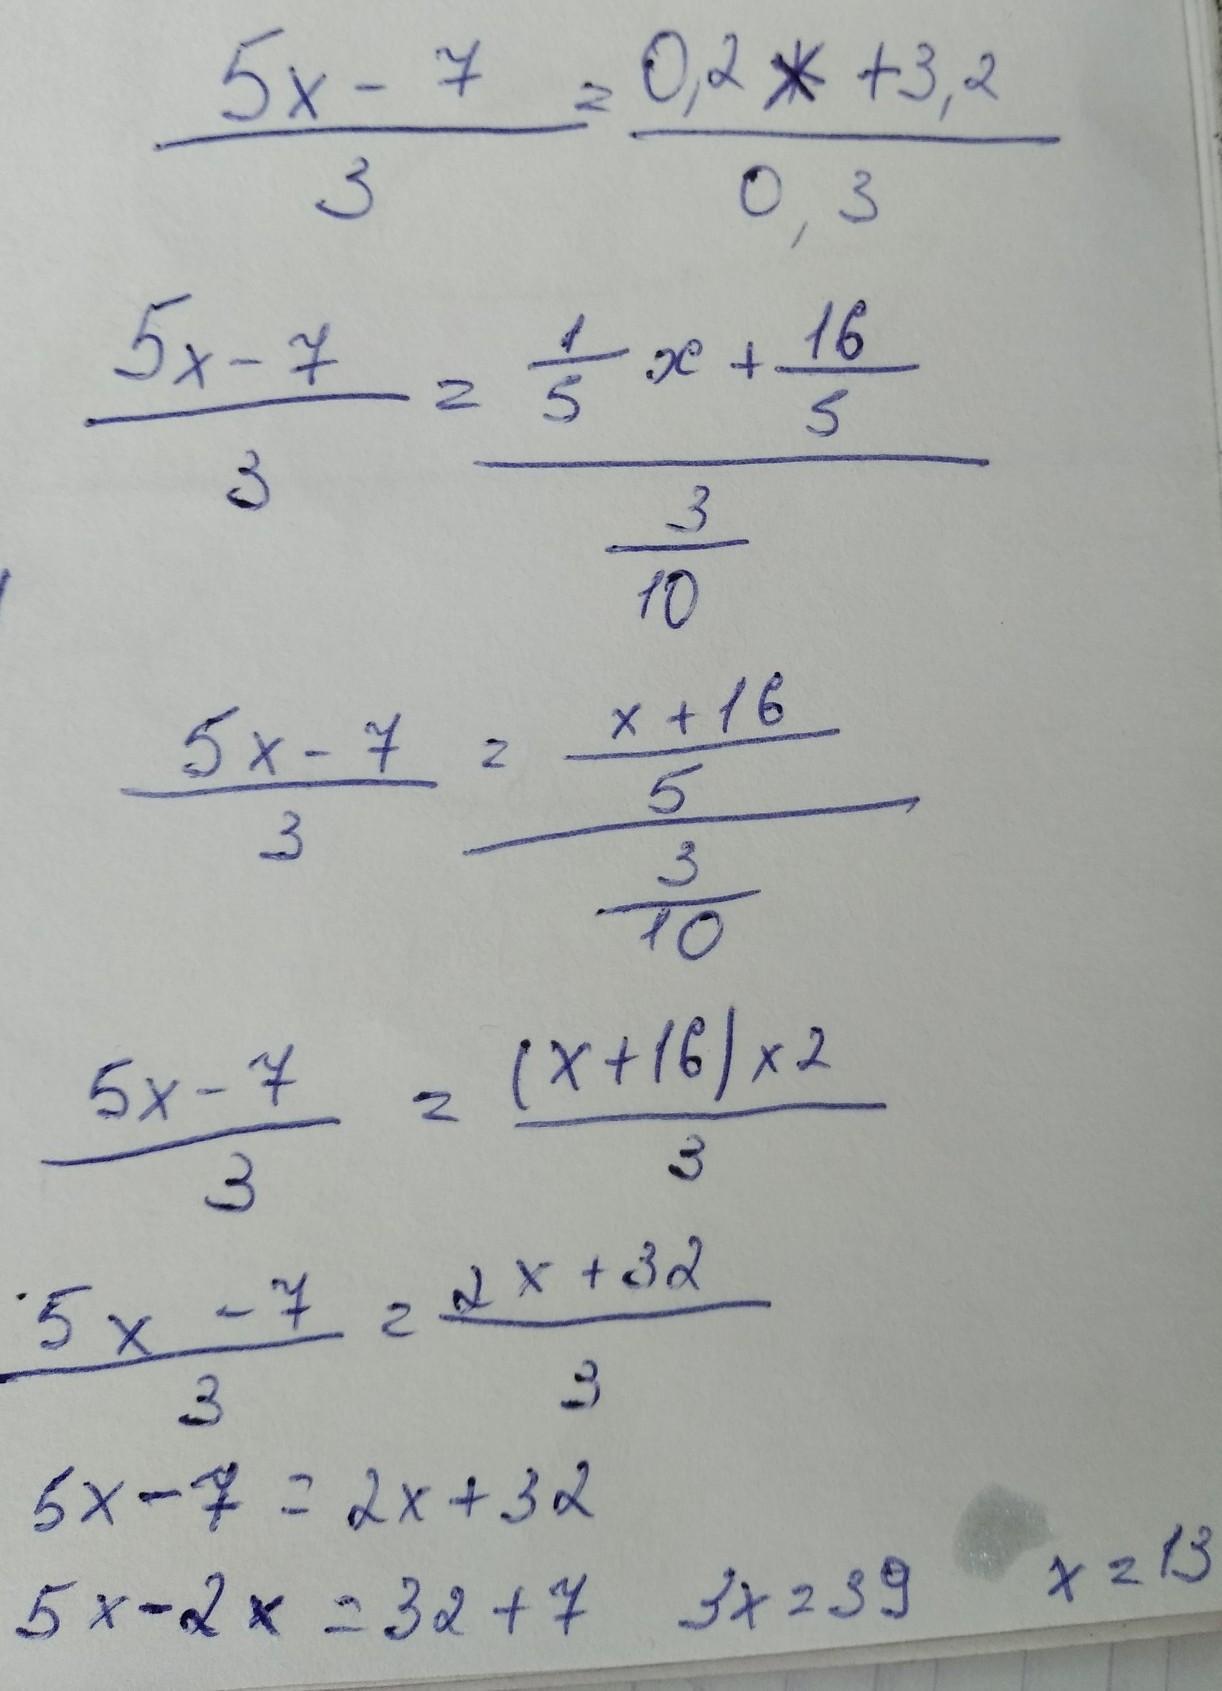 5x - 7 / 3 = 0,2x + 3,2 / 0,3
5x - 7 / 3 = 1/5 x + 16/5 / 3/10
5x - 7 / 3 = x + 16 / 5 / 3/10
5x - 7 / 3 = (x + 16) x 2 / 3
5x - 7 / 3 = 2x + 32 / 3
5x - 7 = 2x + 32
5x - 2x = 32 + 7 3x = 39 x = 13